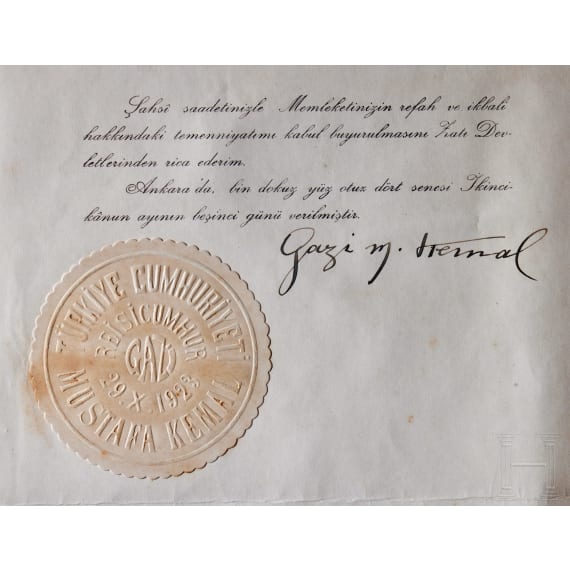 Şahsî saadetinizle Memleketinizin refah ve ikbali
hakkındaki temenniyatımı kabul buyurulmasını Zatı Dev-
letlerinden rica ederim.
Ankara'da, bin dokuz yüz otuz dört senesi İkinci-
kânun ayının beşinci günü verilmiştir.
Gazi M. Kemal
TÜRKİYE CUMHURİYETİ
REİSİCUMHUR
GAZİ
29.X.1923
MUSTAFA KEMAL
H